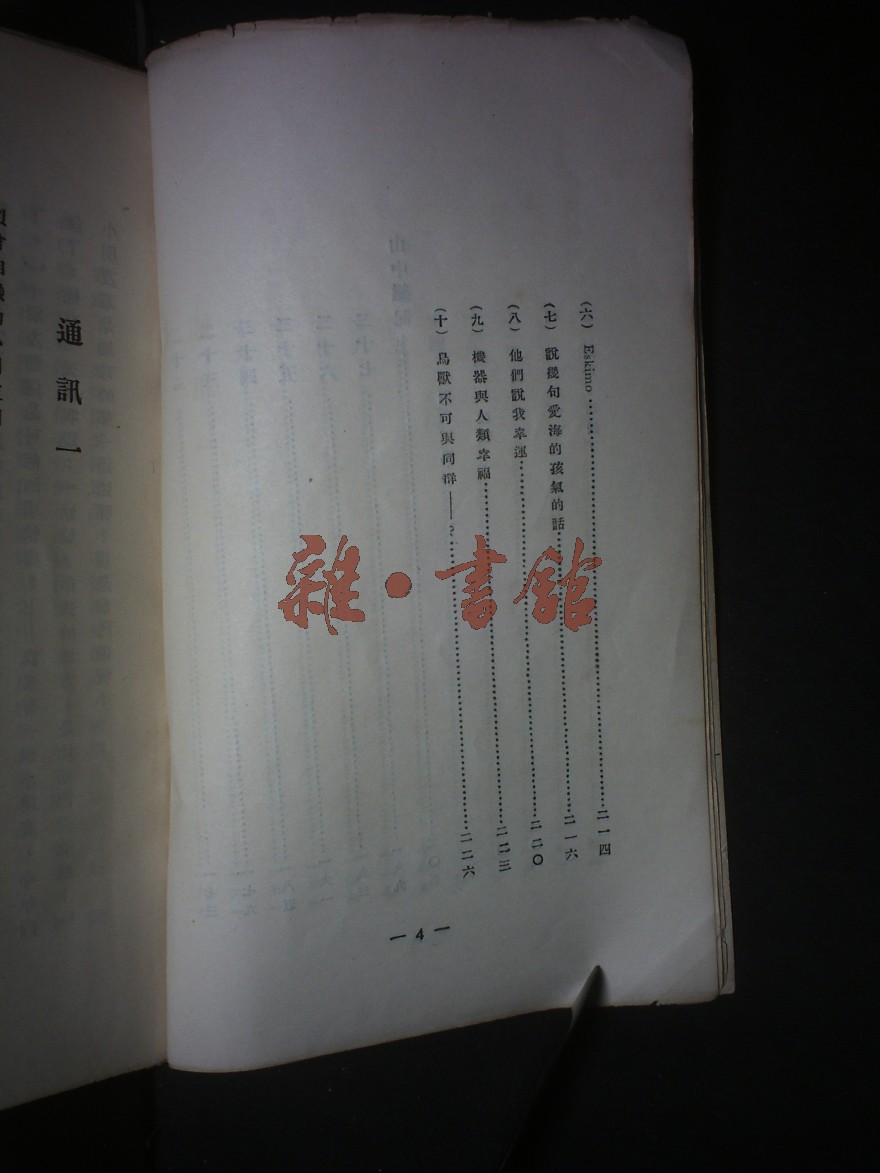 (六) Eskimo…………二一四
(七) 說幾句愛海的孩氣的話…………二一六
(八) 他們說我幸運…………二二〇
(九) 機器與人類幸福…………二二三
(十) 鳥獸不可與同群——?…………二二六
— 4 —
通訊一
雜·書館